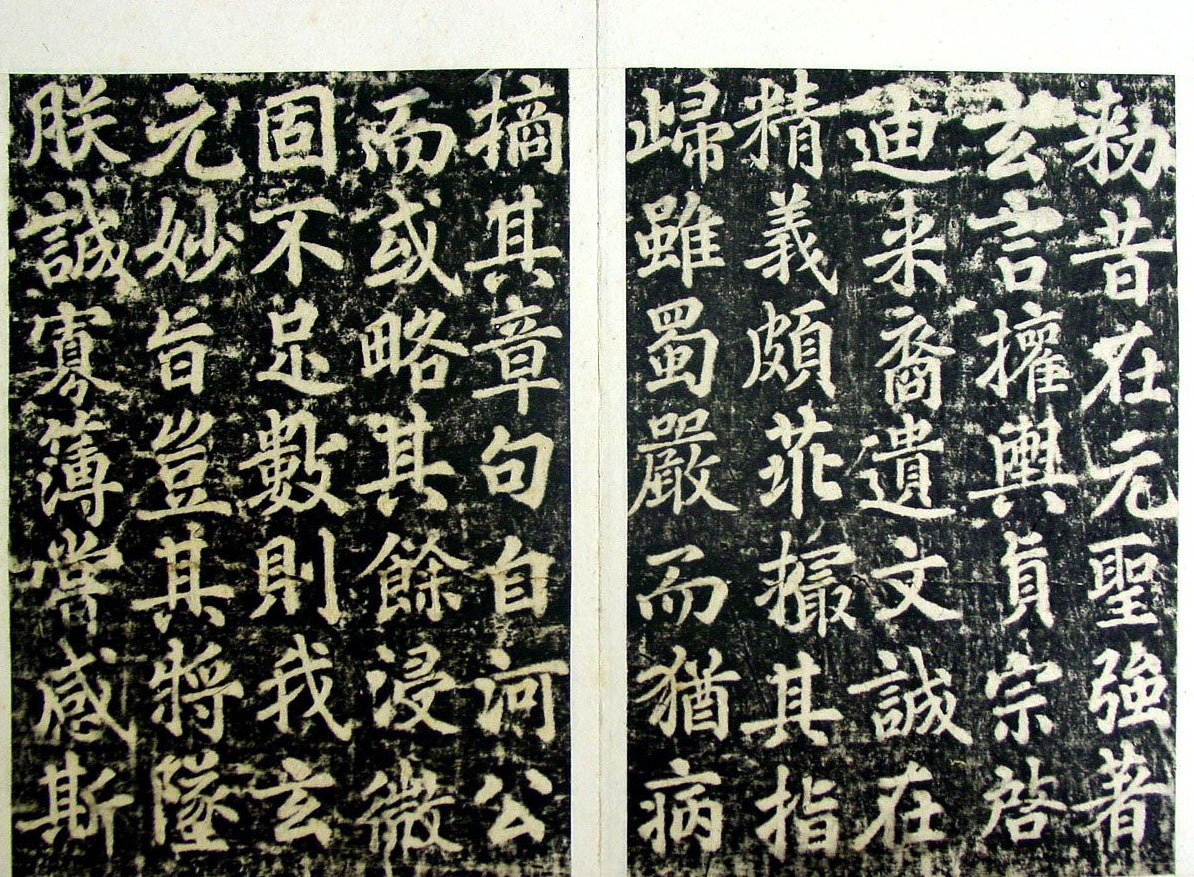 勅昔在元聖強著
玄言權輿真宗啓
迪来裔遺文誠在
精義頗乖撮其指
歸雖蜀嚴而猶病
摘其章句自河公
而或略其餘浸微
固不足數則我玄
元妙旨豈其將墜
朕誠寡薄嘗感斯